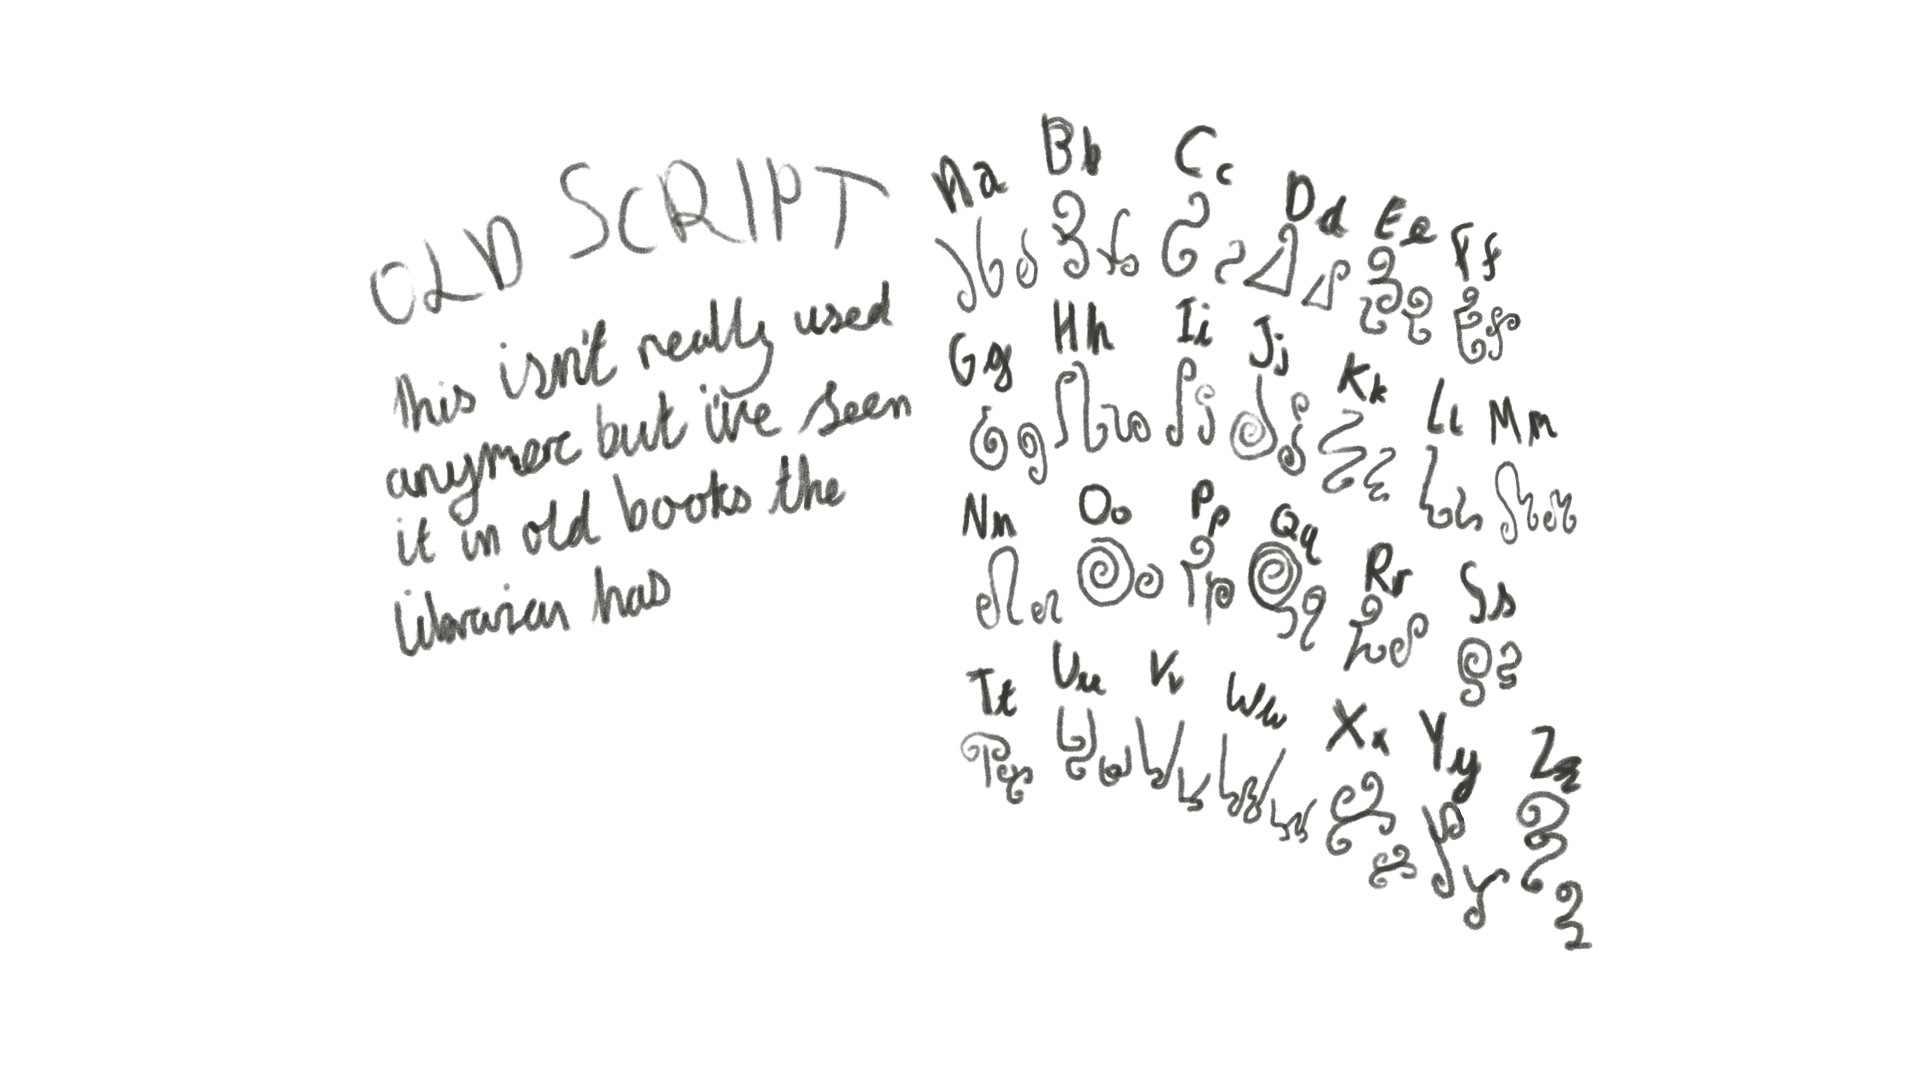 OLD SCRIPT
This isn't really used
anymore but i've seen
it in old books the
librarian has
Aa Bb Cc Dd Ee Ff
Gg Hh Ii Jj Kk Ll Mm
Nn Oo Pp Qq Rr Ss
Tt Uu Vv Ww Xx Yy Zz